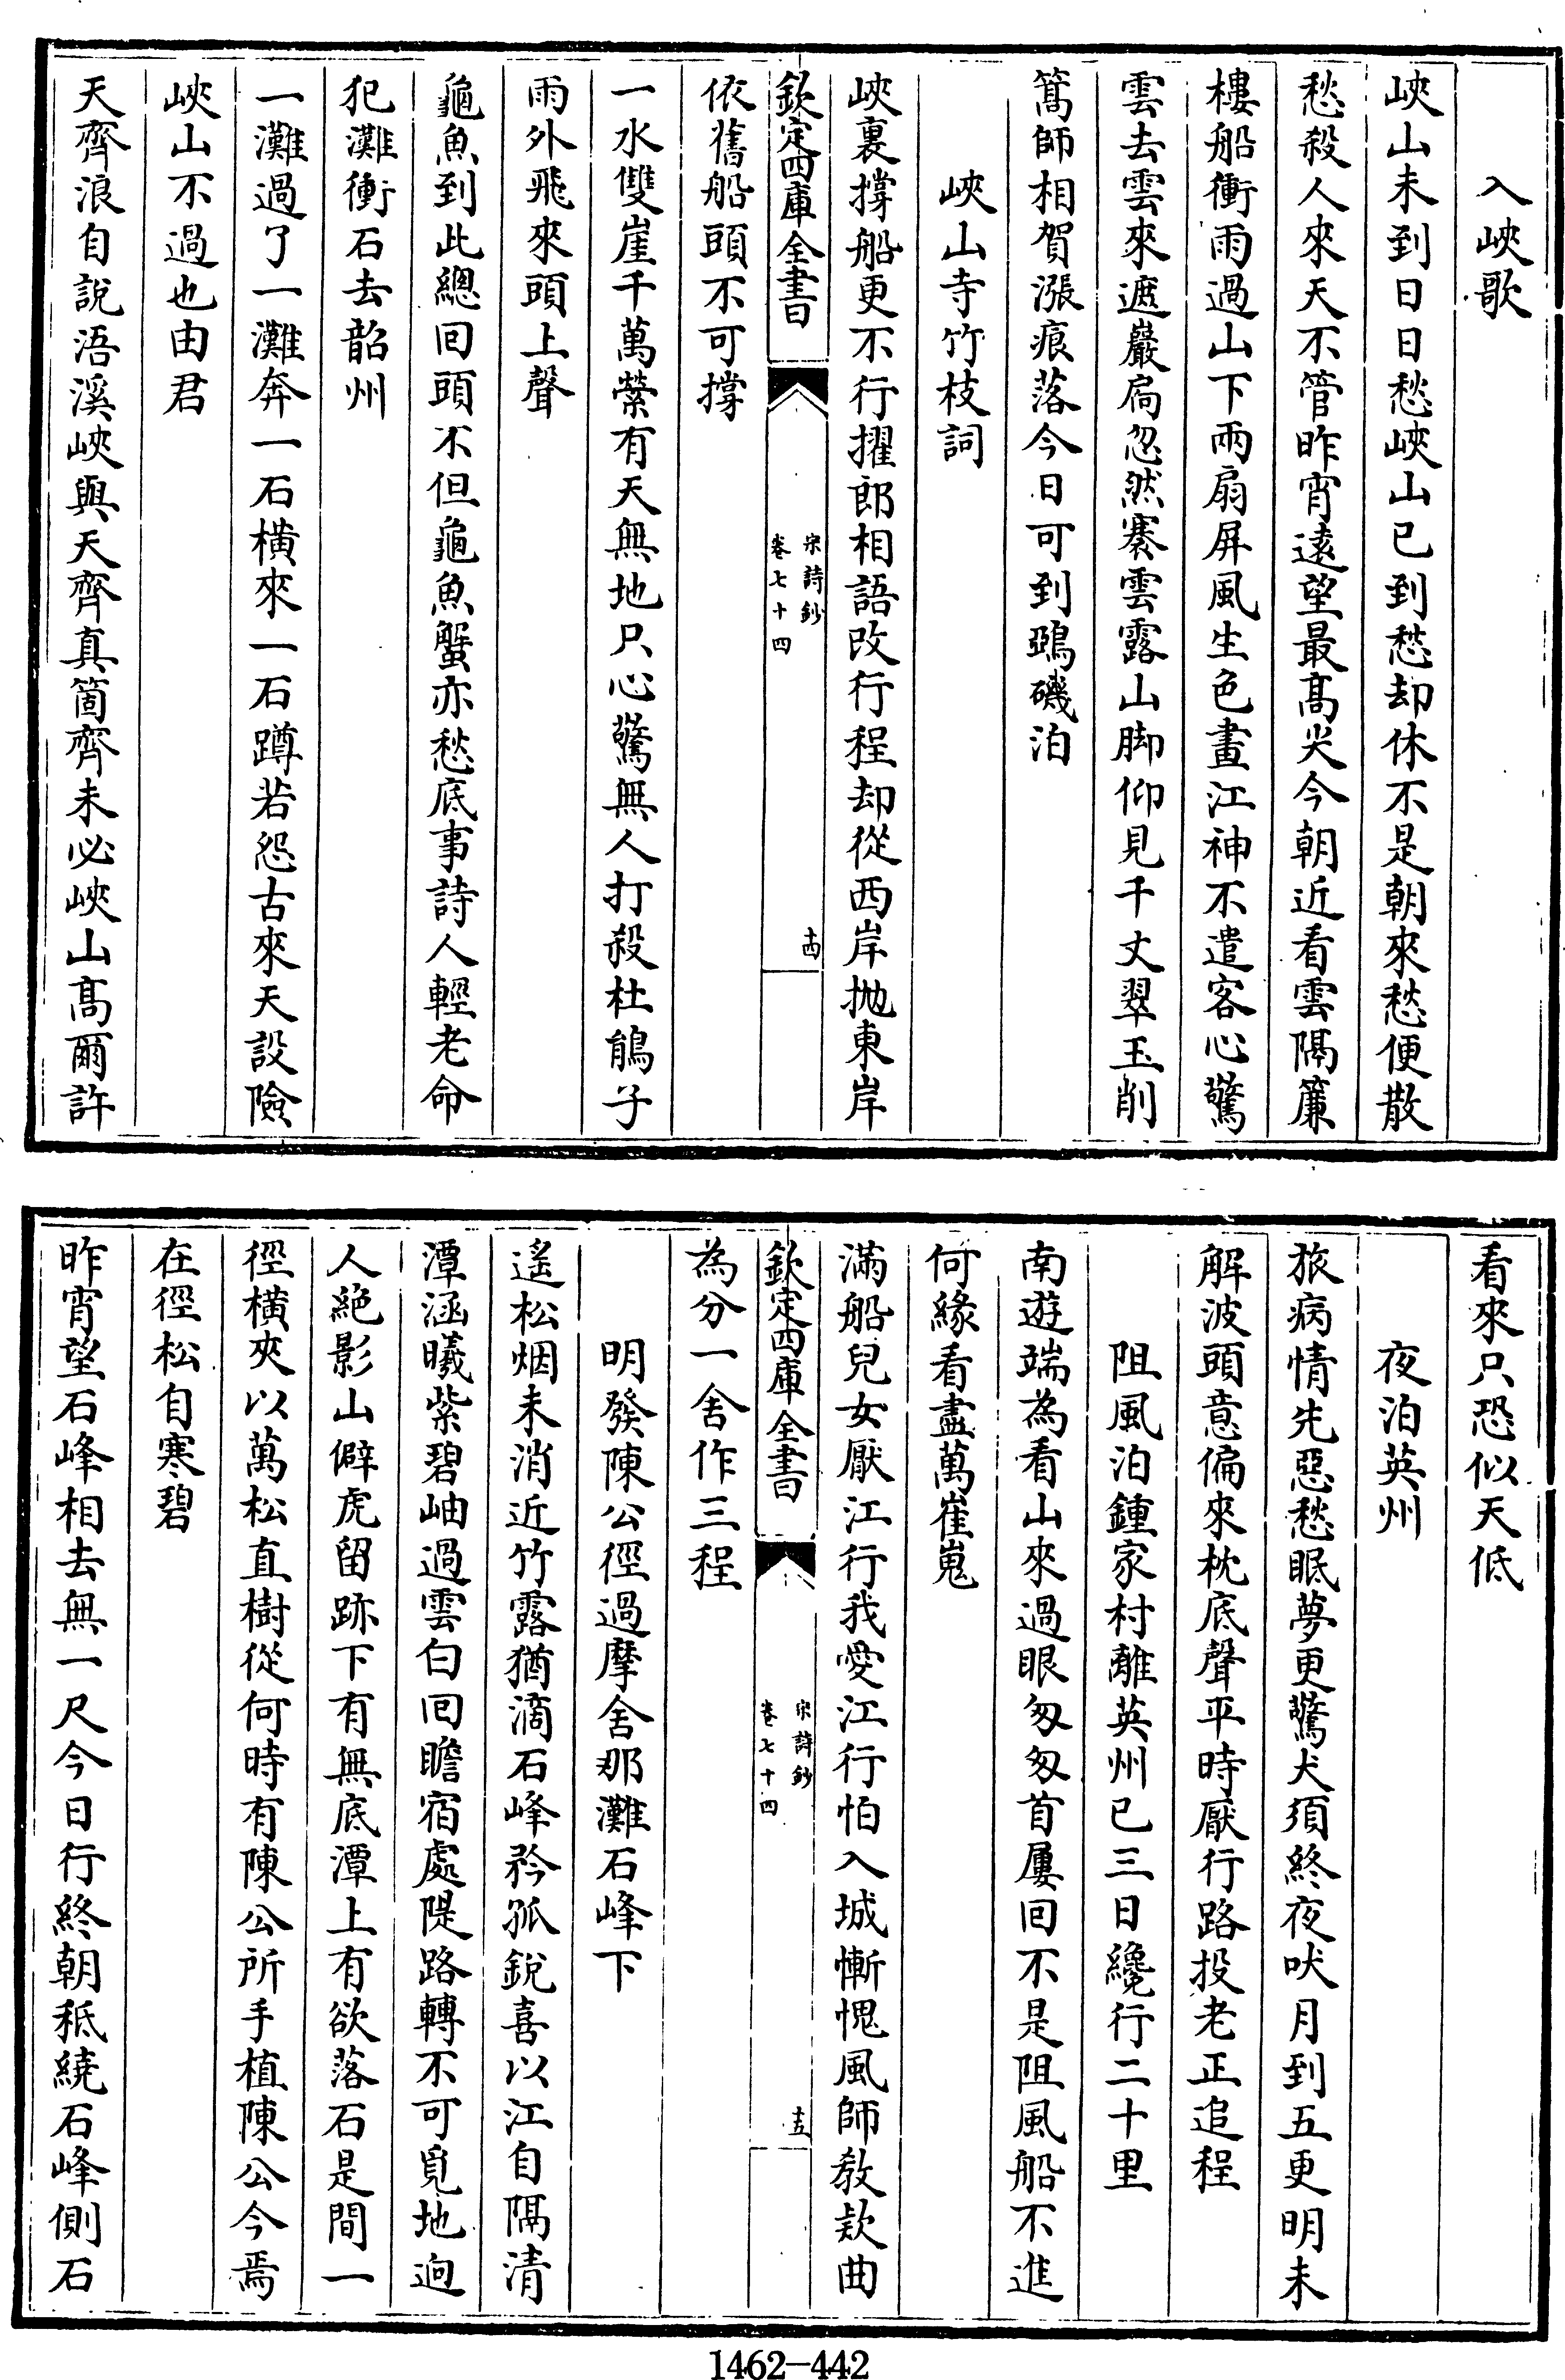 入峽歌
峽山未到日日愁峽山已到愁却休不是朝來愁便散
愁殺人來天不管昨宵遠望最髙尖今朝近看雲隔簾
樓船衝雨過山下兩扇屏風生色畫江神不遣客心驚
雲去雲來遮巖扃忽然褰雲露山脚仰見千丈翠玉削
篙師相賀漲痕落今日可到鵶磯泊
峽山寺竹枝詞
峽裏撐船更不行擢郎相語改行程却從西岸抛東岸
欽定四庫全書
宋詩鈔
卷七十四
十四
依舊船頭不可撐
一水雙崖千萬縈有天無地只心驚無人打殺杜鵑子
雨外飛來頭上聲
龜魚到此總回頭不但龜魚蟹亦愁底事詩人輕老命
犯灘衝石去韶州
一灘過了一灘奔一石橫來一石蹲若怨古來天設險
峽山不過也由君
天齊浪自說浯溪峽與天齊真箇齊未必峽山髙爾許
看來只恐似天低
夜泊英州
旅病情先惡愁眠夢更驚犬須終夜吠月到五更明未
解波頭意偏來枕底聲平時厭行路投老正追程
阻風泊鍾家村離英州已三日纔行二十里
南遊端為看山來過眼匆匆首屢回不是阻風船不進
何緣看盡萬崔嵬
滿船兒女厭江行我愛江行怕入城慚愧風師教欵曲
欽定四庫全書
宋詩鈔
卷七十四
十五
為分一舍作三程
明發陳公徑過摩舍那灘石峰下
遙松烟未消近竹露猶滴石峰矜孤銳喜以江自隔清
潭涵曦紫碧岫過雲白回瞻宿處隄路轉不可覓地迥
人絶影山僻虎留跡下有無底潭上有欲落石是間一
徑橫夾以萬松直樹從何時有陳公所手植陳公今焉
在徑松自寒碧
昨宵望石峰相去無一尺今日行終朝秪繞石峰側石
1462—442